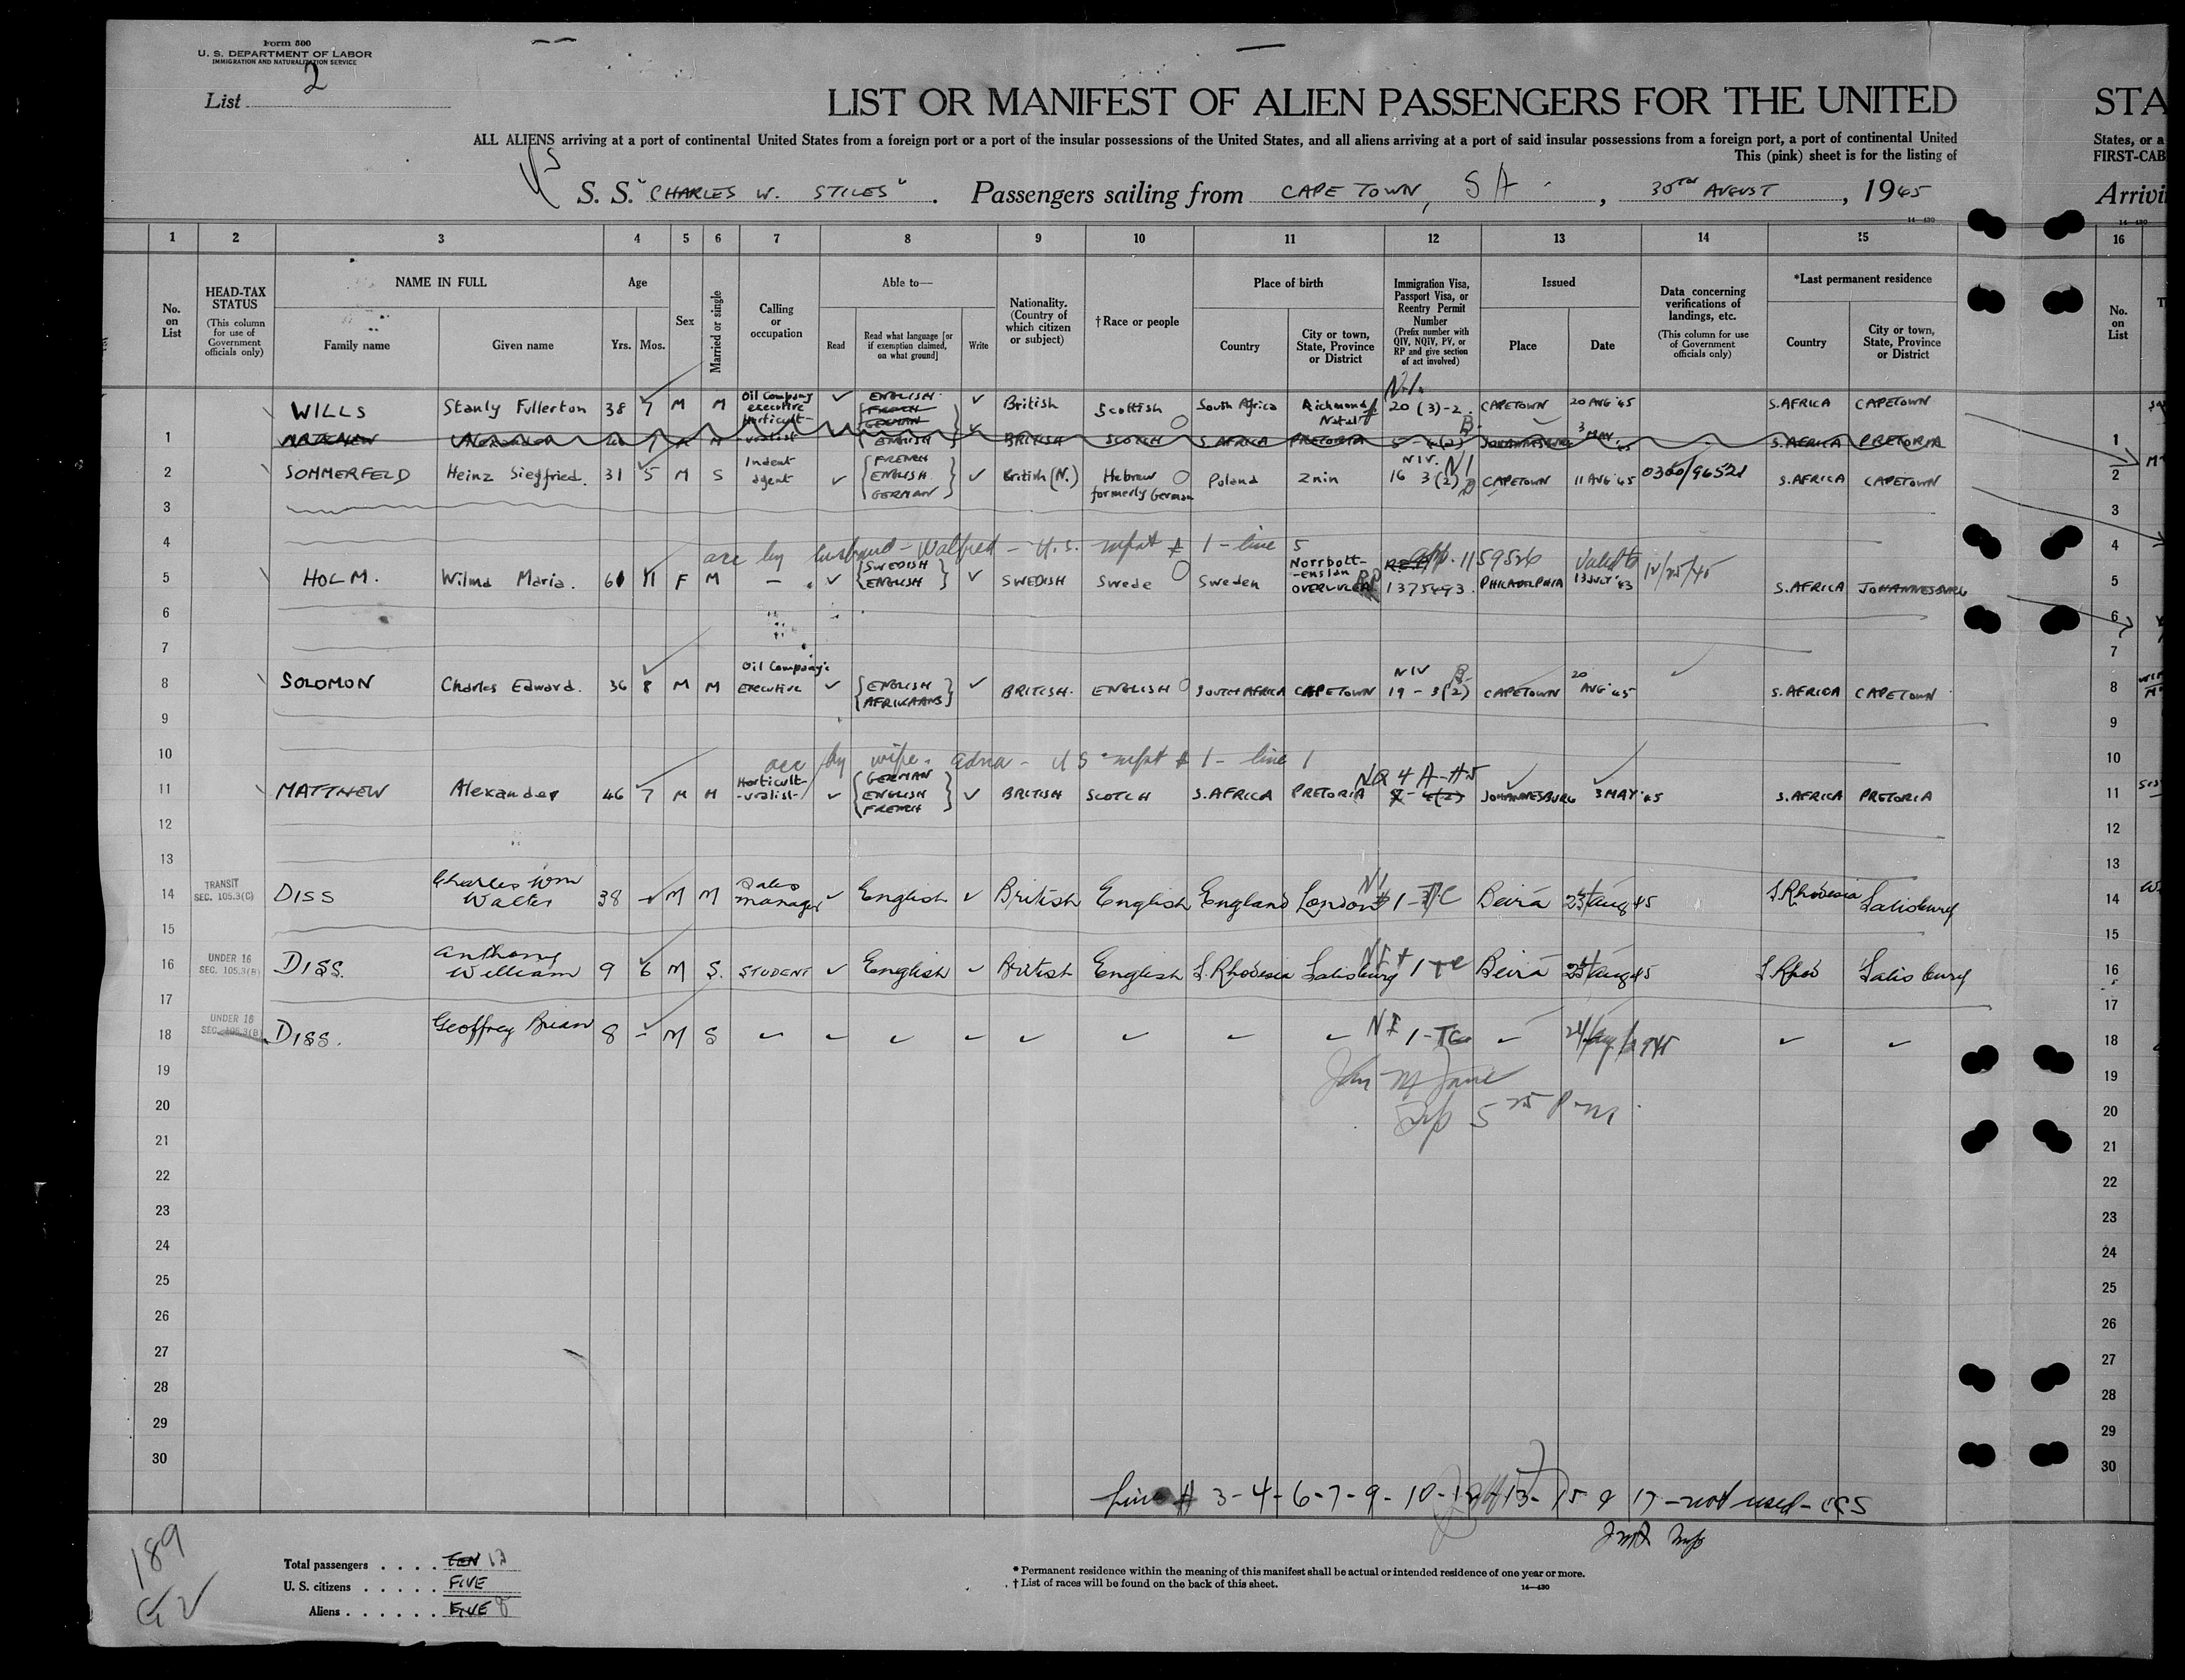 Form 500
U. S. DEPARTMENT OF LABOR
IMMIGRATION AND NATURALIZATION SERVICE
List 2
LIST OR MANIFEST OF ALIEN PASSENGERS FOR THE UNITED STA
ALL ALIENS arriving at a port of continental United States from a foreign port or a port of the insular possessions of the United States, and all aliens arriving at a port of said insular possessions from a foreign port, a port of continental United States, or a
This (pink) sheet is for the listing of FIRST-CAB
S. S. "CHARLES W. STILES". Passengers sailing from CAPE TOWN, SA, 30TH AUGUST, 1945 Arrivi
14—430 14—430
1 2 3 4 5 6 7 8 9 10 11 12 13 14 15 16
No. on List
HEAD-TAX STATUS (This column for use of Government officials only)
NAME IN FULL Family name Given name
Age Yrs. Mos.
Sex
Married or single
Calling or occupation
Able to— Read Read what language [or if exemption claimed, on what ground] Write
Nationality. (Country of which citizen or subject)
†Race or people
Place of birth Country City or town, State, Province or District
Immigration Visa, Passport Visa, or Reentry Permit Number (Prefix number with QIV, NQIV, PV, or RP and give section of act involved)
Issued Place Date
Data concerning verifications of landings, etc. (This column for use of Government officials only)
*Last permanent residence Country City or town, State, Province or District
No. on List
WILLS Stanly Fullerton 38 7 M M Oil Company executive ENGLISH British Scottish South Africa Richmond Natal 20 (3)-2 CAPETOWN 20 AUG '45 S.AFRICA CAPETOWN
1 MATTHEW Alexander 46 7 M M Horticult-uralist FRENCH GERMAN ENGLISH BRITISH SCOTCH S.AFRICA PRETORIA JOHANNESBURG 3 MAY 45 S.AFRICA PRETORIA 1
2 SOMMERFELD Heinz Siegfried. 31 5 M S Indent agent FRENCH ENGLISH GERMAN British (N.) Hebrew formerly German Poland Znin NIV. NI 16 3(2) B CAPETOWN 11 AUG '45 0300/96521 S.AFRICA CAPETOWN 2
3 3
4 acc by husband - Walfred - U.S. mfst # 1 - line 5 4
5 HOLM. Wilma Maria. 61 11 F M — SWEDISH ENGLISH SWEDISH Swede Sweden Norrbott-enslan RP app. 1159526 1375493. PHILADELPHIA Valid to 13 JULY '43 S.AFRICA JOHANNESBURG 5
6 6
7 7
8 SOLOMON Charles Edward. 36 8 M M Oil Company executive ENGLISH AFRIKAANS BRITISH. ENGLISH SOUTH AFRICA CAPETOWN NIV B 19 - 3(2) CAPETOWN 20 AUG '45 S.AFRICA CAPETOWN 8
9 9
10 acc by wife - Edna - US mfst # 1 - line 1 10
11 MATTHEW Alexander 46 7 M M Horticult-uralist GERMAN ENGLISH FRENCH BRITISH SCOTCH S.AFRICA PRETORIA NQ 4 A-#5 JOHANNESBURG 3 MAY '45 S.AFRICA PRETORIA 11
12 12
13 13
14 TRANSIT SEC. 105.3(C) DISS Charles Wm Walter 38 - M M Sales manager English British English England London NI 1-TC Beira Aug 45 S Rhodesia Salisbury 14
15 15
16 UNDER 16 SEC. 105.3(B) DISS. Anthony William 9 6 M S. STUDENT English British English S. Rhodesia Salisbury 1 TC Beira Aug 45 S Rhod Salisbury 16
17 17
18 UNDER 16 SEC. 105.3(B) DISS. Geoffrey Brian 8 - M S NI 1-TC 24/Aug/1945 18
19 19
20 5 25 P.M. 20
21 21
22 22
23 23
24 24
25 25
26 26
27 27
28 28
29 29
30 30
Line # 3-4-6-7-9-10-12-13-15 & 17 - not used -
189
Total passengers . . . . TEN 13
U. S. citizens . . . . . FIVE
Aliens . . . . . . FIVE 8
* Permanent residence within the meaning of this manifest shall be actual or intended residence of one year or more.
† List of races will be found on the back of this sheet. 14—430